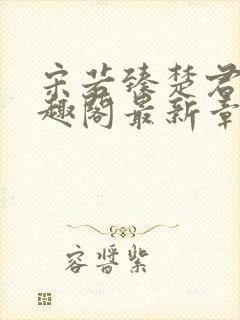 宋若臻楚君
趣阁最新章
容晋紫